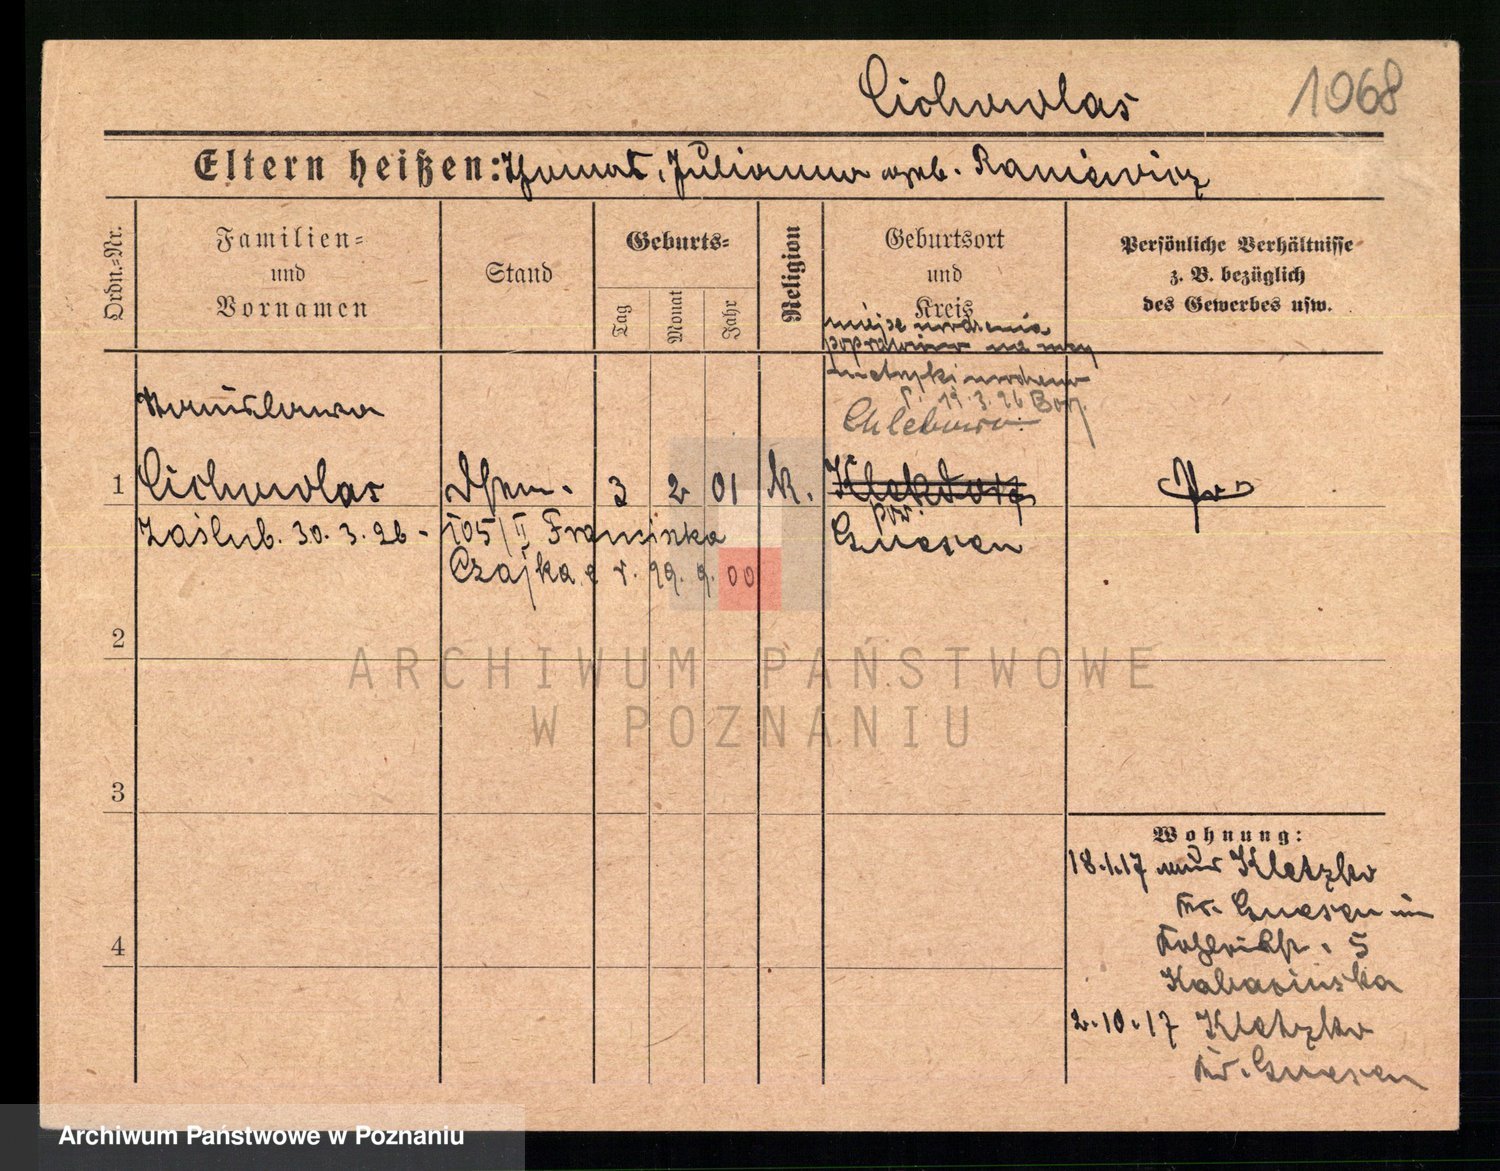 Cichowlas
1068
Eltern heißen: Thomas, Julianna geb. Raniewicz
Ordn.-Nr.
Familien-
und
Vornamen
Stand
Geburts-
Tag
Monat
Jahr
Religion
Geburtsort
und
Kreis
Persönliche Verhältnisse
z. B. bezüglich
des Gewerbes usw.
miejsce urodzenia
poprawiono na mocy
metryki urodzenia
19.3.26
Chlebowo
1 Cichowlas 3 2 01 k. Klekdorf Pr
pow.
Gnesen
Zaślub. 30.3.26 - 105/II Franciszka
Czajka r. 29.9.00
2
3
4
Wohnung:
18.1.17 aus Kletzko
Kr. Gnesen
5
2.10.17 Kletzko
Kr. Gnesen
ARCHIWUM PAŃSTWOWE
W POZNANIU
Archiwum Państwowe w Poznaniu